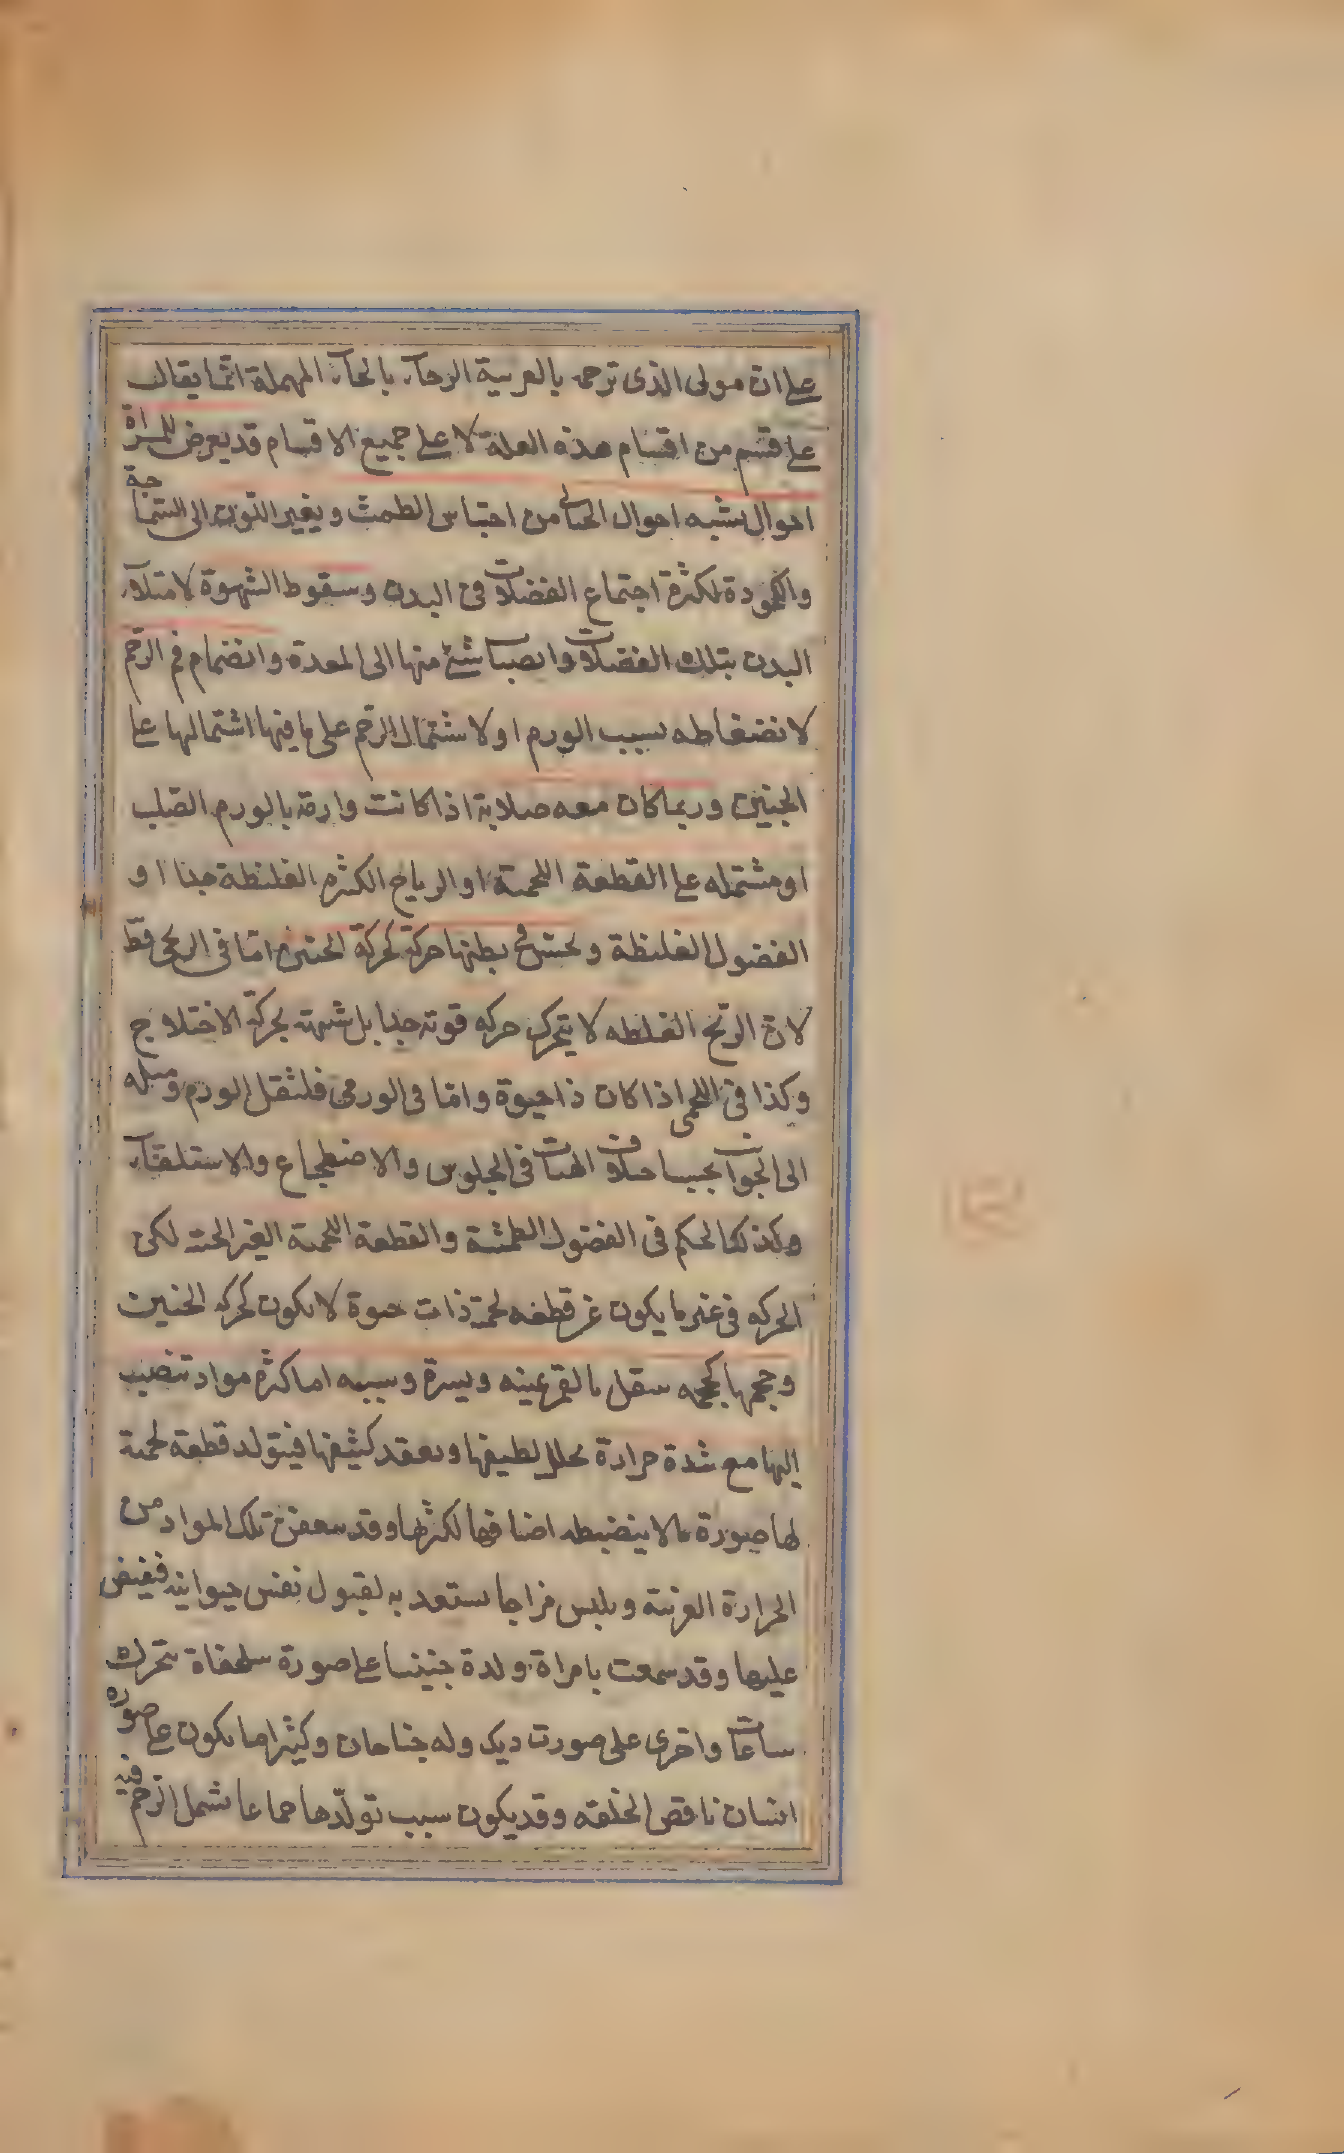 على ان مولى الذى ترجمه بالعربية الرحآء بالحآء المهملة انما يقال
على قسم من اقسام هذه العلة لا على جميع الاقسام قد يعرض للمراة
احوال يشبه احوال الحبالى من احتباس الطمث ويغير اللون الى السماجة
والكمودة لكثرة اجتماع الفضلات فى البدن وسقوط الشهوة لامتلآء
البدن بتلك الفضلات وانصباب شئ منها الى المعدة وانضمام فم الرحم
لانضغاطه بسبب الورم او لاشتمال الرحم على ما فيها اشتمالها على
الجنين وربما كان معه صلابة اذا كانت وارمة بالورم الصلب
او مشتمله على القطعة اللحمية او الرياح الكثيره الغليظة جدا او
الفضول الغليظة ويحس فى بطنها حركة كحركة الجنين اما فى الريحى فقط
لان الريح الغليظه لا يتحرك حركه قويه جدا بل شبيهة بحركة الاختلاج
وكذا فى اللحمى اذا كان ذا حيوة واما فى الورمى فلثقل الورم وميله
الى الجوانب بحسب اختلاف الهيئات فى الجلوس والاضطجاع والاستلقآء
وكذلك الحكم فى الفضول الطمثية والقطعة اللحمية الغير الحية لكن
الحركه فى غير ما يكون عن قطعه لحمية ذات حيوة لا يكون كحركه الجنين
وحجمها كحجمه ينتقل بالغمز يمينه ويسرة وسببه اما كثرة مواد تنصب
اليها مع شدة حرارة يحلل لطيفها ويعقد كثيفها فيتولد قطعة لحمية
لها صورة مما لا ينضبطه اصنافها لكثرتها وقد يتعفن تلك المواد من
الحرارة الغريبة ويلبس مزاجا يستعد به لقبول نفس حيوانيه فيفيض
عليها وقد سمعت بامراة ولدة جنينا على صورة سلحفاة يتحرك
ساعات واخرى على صورت ديك وله جناحان وكثيرا ما يكون على صوره
انسان ناقص الخلقه وقد يكون سبب تولدها جماعا يشمل الرحم فيه